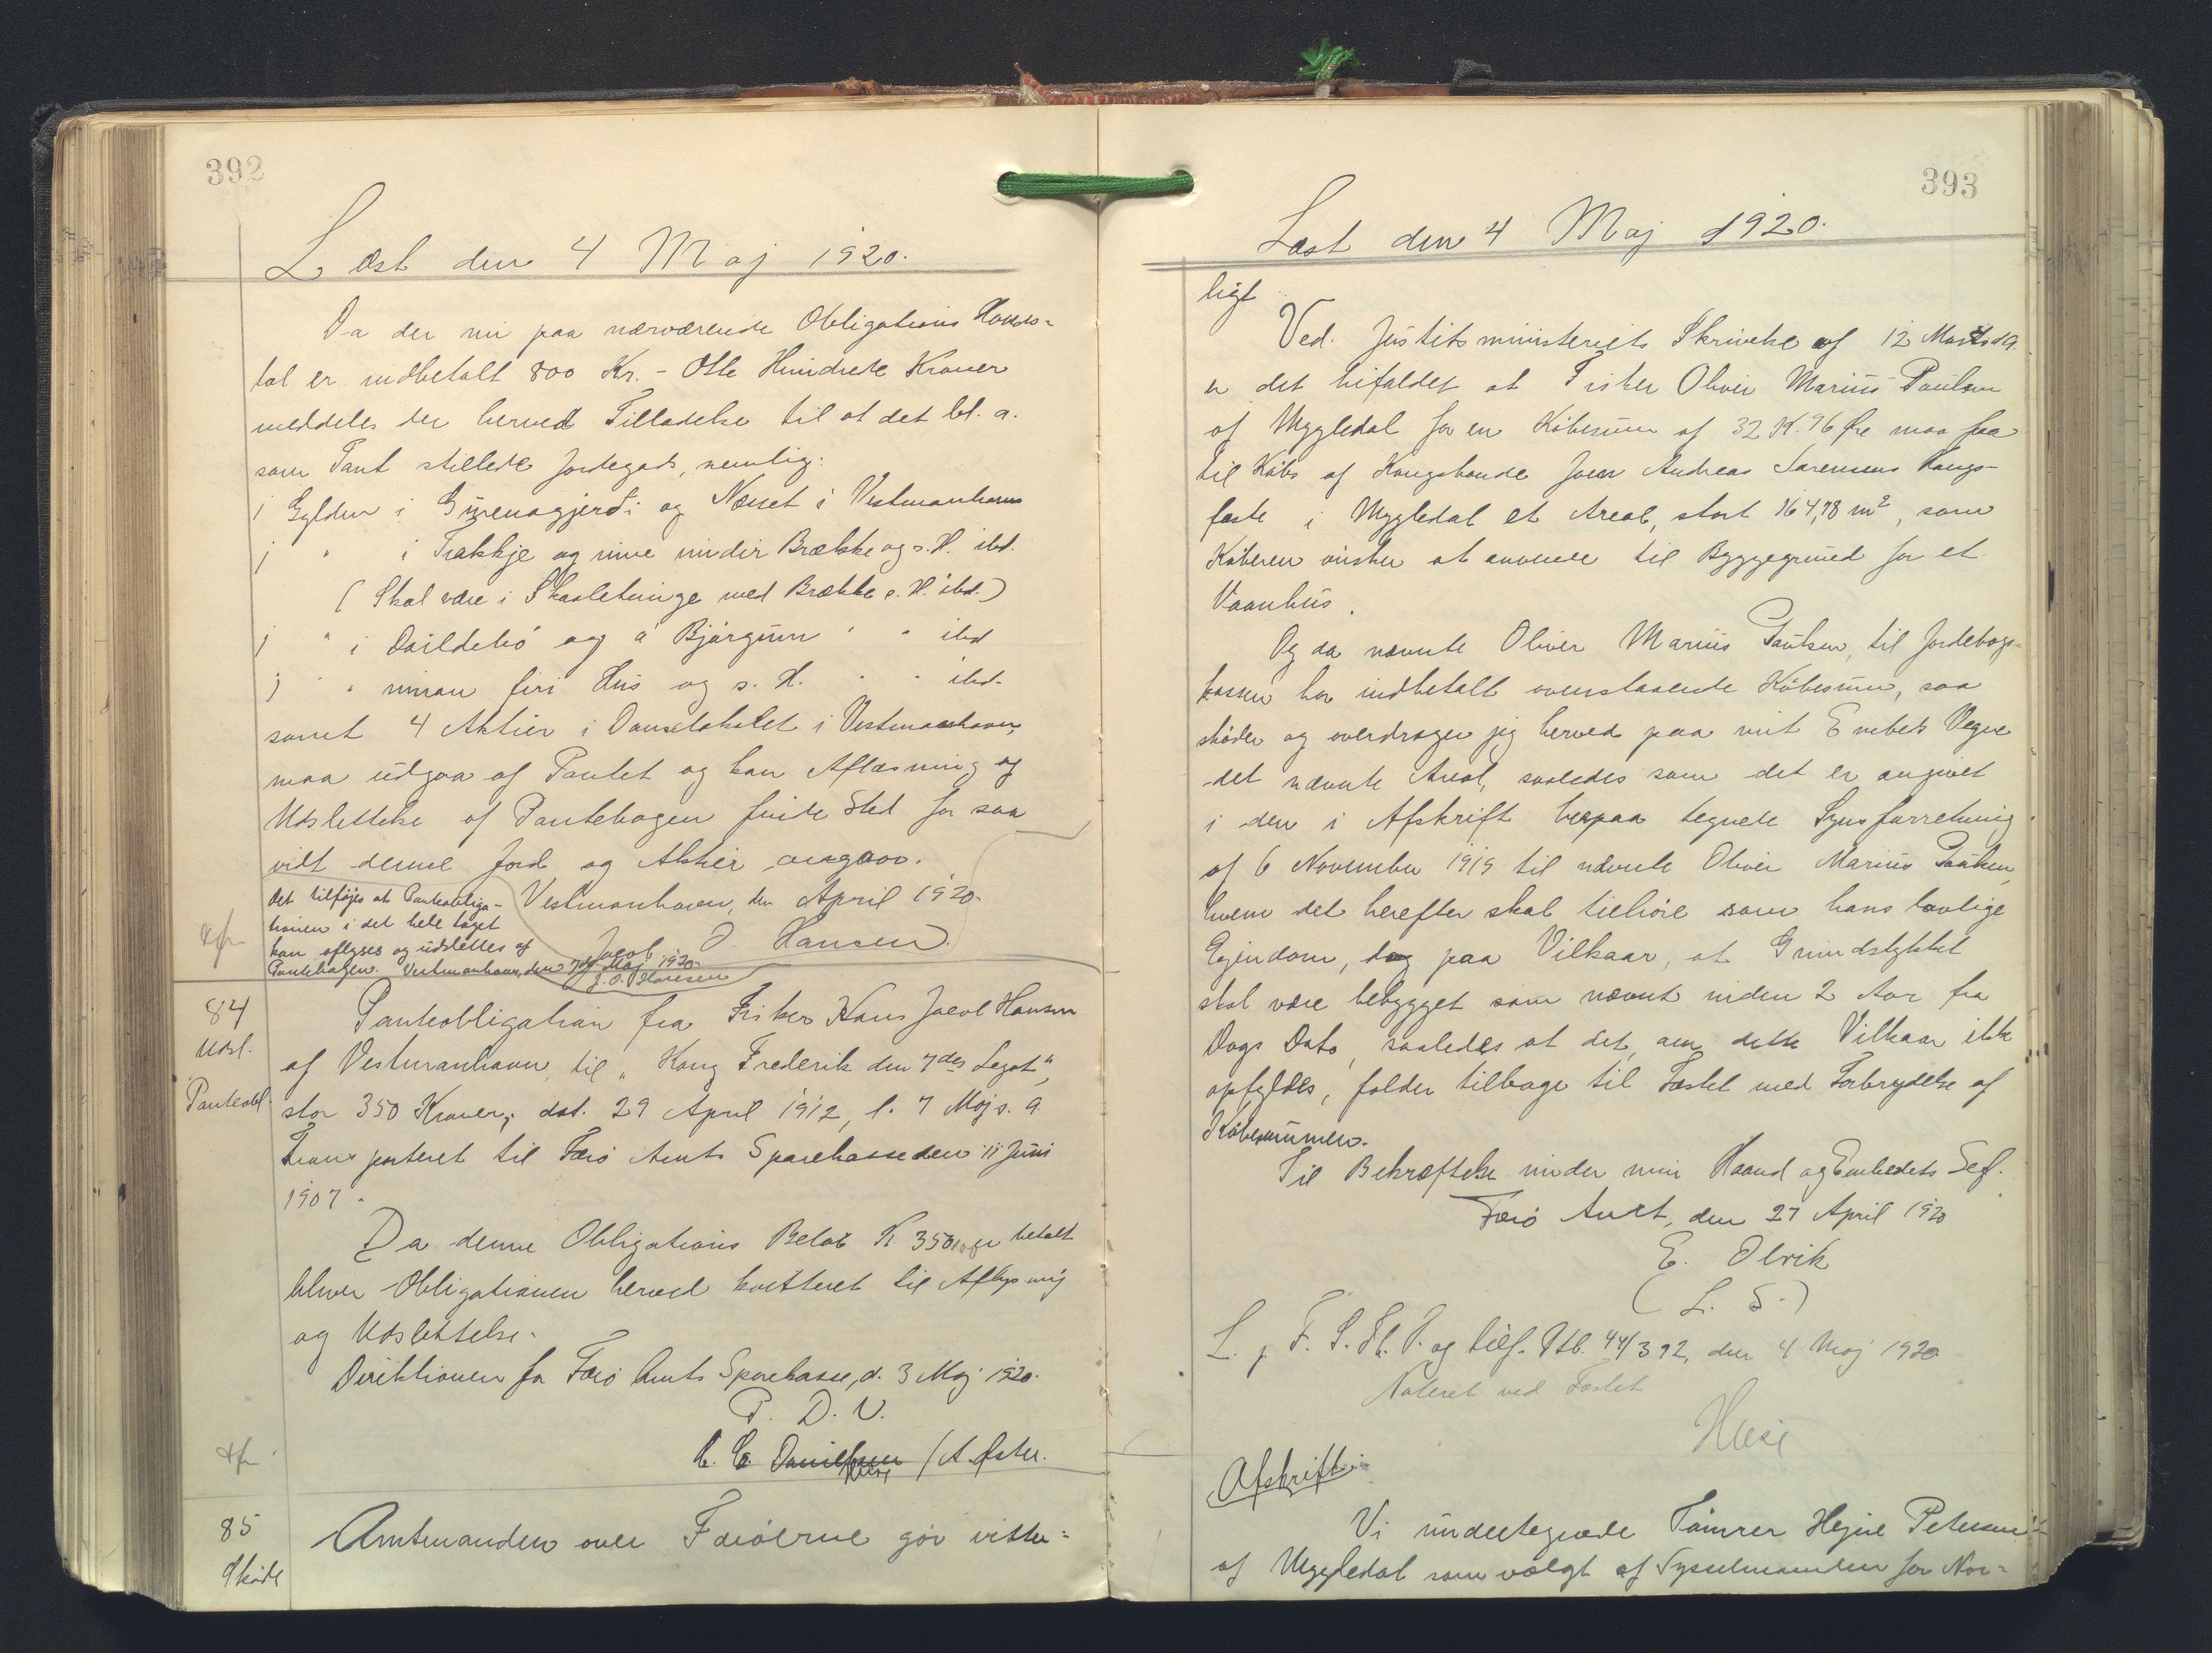 392
Læst den 4 Maj 1920.
Da der nu paa nærværende Obligations Hoveds=
tol er indbetalt 800 Kr. - Otte Hundrede Kroner
meddeles der herved Tilladelse til at det bl. a.
som Pant stillede Jordegods, nemlig:
1 Gylden i og Nesset i Vestmanhavn
1 " i og inne undir Brekke og s. H. ibd.
( Skal være i med Brekke s. H. ibd.)
1 " i og á Bjørgum " " ibd
1 " " innan firi Hús og s. H. " " ibd.
samt 4 Aktier i Danselokalet i Vestmanhavn,
maa udgaa af Pantet og kan Aflæsning og
Udslettelse af Pantebogen finde Sted for saa
vidt denne Jord og Aktier angaar.
Vestmanhavn, den April 1920.
Jacob J. Hansen
Det tilføjes at Panteobliga-
tionen i det hele taget
kan aflyses og udslettes af
Pantebogen. Vestmanhavn, den 7de Maj 1920.
J. J. Hansen
84
Udsl.
Panteobl.
Panteobligation fra Fisker Hans Jacob Hansen
af Vestmanhavn, til "Kong Frederik den 7des Legat",
stor 350 Kroner, dat. 29 April 1912, l. 7 Maj s. A.
Transporteret til Færø Amts Sparekasse den 11 Juni
1907.
Da denne Obligations Beløb K 350 er betalt
bliver Obligationen herved kvitteret til Aflysning
og Udslettelse.
Direktionen for Færø Amts Sparekasse, d. 3 Maj 1920.
P. D. V.
C. Danielsen / A. Øster.
85
Skøde
Amtmanden over Færøerne gør vitter=
393
Læst den 4 Maj 1920.
ligt
Ved Justitsministeriets Skrivelse af 12 Marts d A.
er det bifaldet at Fisker Oliver Marius Poulsen
af Myggledal for en Købesum af 32 K. 96 Øre maa faa
til Købs af Kongsbonde Joen Andreas Sørensens Kongs-
fæste i Myggledal et Areal, stort 164,78 m², som
Køberen ønsker at anvende til Byggegrund for et
Vaanhus.
Og da nævnte Oliver Marius Poulsen, til Jordebogs=
kassen har indbetalt ovenstaaende Købesum, saa
skøder og overdrager jeg herved paa mit Embeds Vegne
det nævnte Areal, saaledes som det er angivet
i den i Afskrift herpaa tegnede Synsforretning
af 6 November 1919 til nævnte Oliver Marius Poulsen,
hvem det herefter skal tilhøre som hans lovlige
Ejendom, dog paa Vilkaar, at Grundstykket
skal være bebygget som nævnt inden 2 Aar fra
Dags Dato, saaledes at det, om dette Vilkaar ikke
opfyldes, falder tilbage til Fæstet med Forbrydelse af
Købesummen.
Til Bekræftelse under min Haand og Embedets Segl.
Færø Amt, den 27 April 1920
E. Olrik
( L. S. )
L. p. F. S. Th. P. og tilf. Ptb. 44/392, den 4 Maj 1920
Noteret ved Fæstet
Afskrift.
Vi undertegnede Tømrer Hejne Petersen
af Myggledal som valgt af Sysselmanden for Nor=